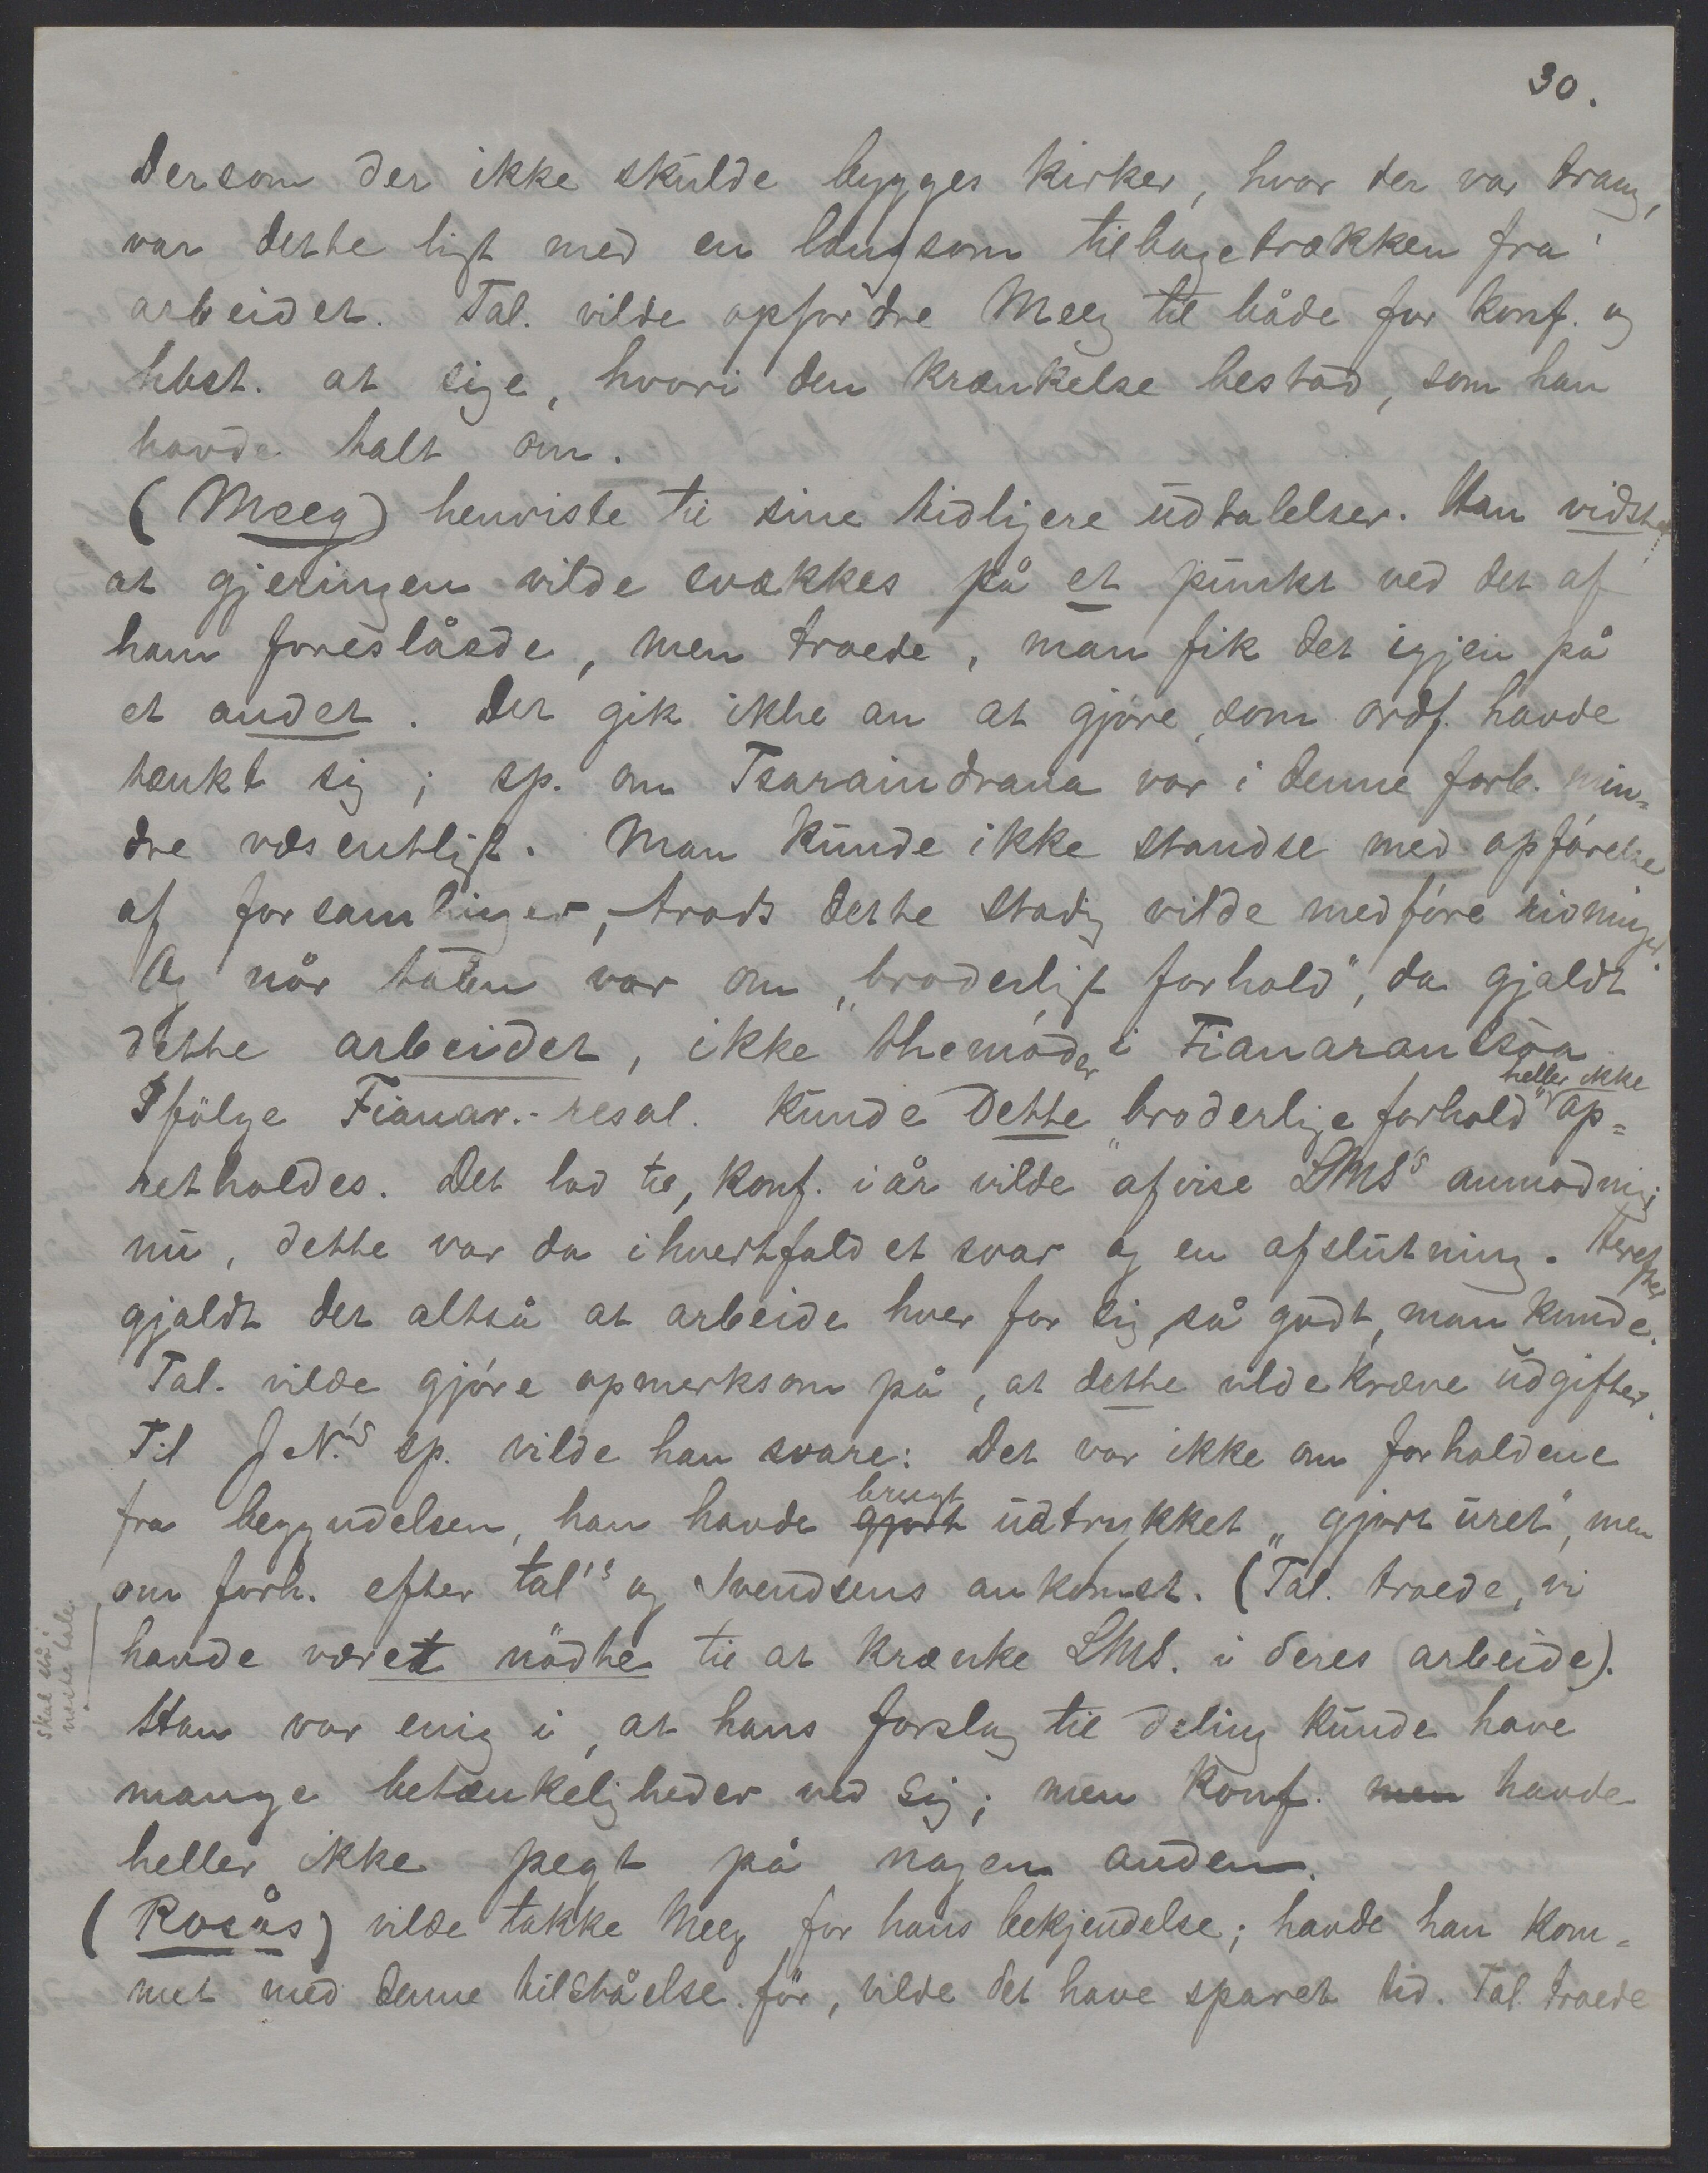 30.
Dersom der ikke skulde bygges kirker, hvor der var trang,
var dette ligt med en langsom tilbagetrækken fra
arbeidet. Tal. vilde opfordre Meeg til både for konf. og
hbst. at sige, hvori den krænkelse bestod, som han
havde talt om.
(Meeg) henviste til sine tidligere udtalelser. Han vidste
at gjeringen vilde svækkes på et punkt ved det af
ham foreslåede, men troede, man fik det igjen på
et andet. Det gik ikke an at gjøre, som ordf. havde
tænkt sig; sp. om Tsaraindrana var i denne forb. min=
dre væsentligt. Man kunde ikke standse med opførelse
af forsamlinger, trods dette stadig vilde medføre rivninger.
Og når talen var om „broderligt forhold", da gjaldt
dette arbeidet, ikke themøder i Fianarantsoa
Ifølge Fianar.-resol. kunde dette „broderlige forhold" heller ikke op=
retholdes. Det lod til, konf. i år vilde afvise LMS's anmodning
nu, dette var da ihvertfald et svar og en afslutning. Herefter
gjaldt det altså at arbeide hver for sig, så godt, man kunde.
Tal. vilde gjøre opmerksom på, at dette vilde kræve udgifter.
Til J N.'s sp. vilde han svare: Det var ikke om forholdene
fra begyndelsen, han havde gjort brugt udtrykket „gjort uret", men
om forh. efter tal's og Svendsens ankomst. (Tal. troede, vi
havde været nødte til at krænke LMS. i deres arbeide).
skal stå i
næste tale
Han var enig i, at hans forslag til deling kunde have
mange betænkeligheder ved sig; men konf. men havde
heller ikke pegt på nogen anden.
(Rosås) vilde takke Meeg for hans bekjendelse; havde han kom=
met med denne tilståelse før, vilde det have sparet tid. Tal. troede